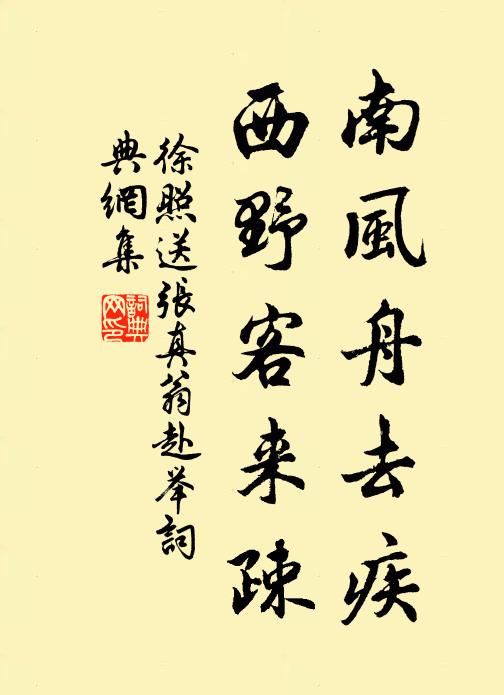 南風舟去疾
西野客来疎
徐照送張真翁赴举詞
典網集
詞典
网印